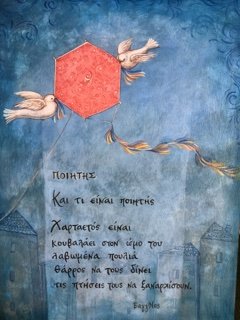 ΠΟΙΗΤΗΣ
Και τι είναι ποιητής
Χαρταετός είναι
κουβαλάει στον ώμο του
λαβωμένα πουλιά
θάρρος να τους δίνει
τις πτήσεις τους να ξαναρχίσουν.